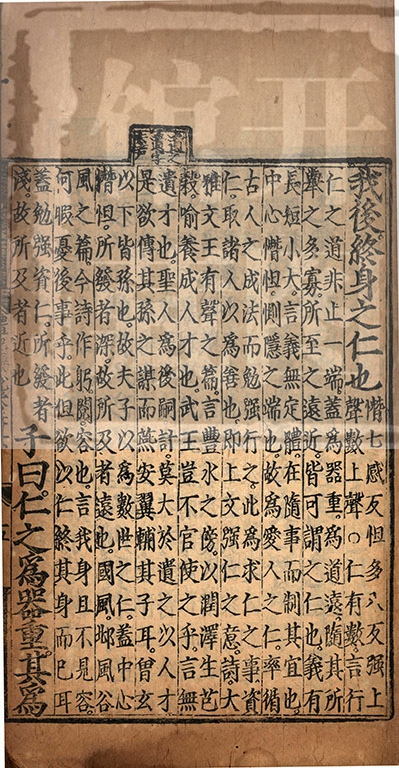 我後終身之仁也
憯七感反怛多八反强上
聲數上聲○仁有數言行
仁之道非止一端蓋為器重為道遠隨其所
舉之多寡所至之遠近皆可謂之仁也義有
長短小大言義無定體在隨事而制其宜也
中心憯怛惻隱之端也故為愛人之仁率循
古人之成法而勉强行之此為求仁之事資
仁取諸人以為善也即上文强仁之意詩大
雅文王有聲之篇言豐水之傍以潤澤生芑
穀喻養成人才也武王豈不官使之乎言無
遺才也聖人為後嗣計莫大於遺之以人才
是欲傳其孫之謀而燕安翼輔其子耳曽玄
以下皆孫也故夫子以為數世之仁蓋中心
憯怛所發者深故所及者遠也國風邶風谷
風之篇今詩作躬閱容也言我身且不見容
何暇憂後事乎此但欲以仁終其身而已耳
蓋勉强資仁所發者
淺故所及者近也
子曰仁之為器重其為